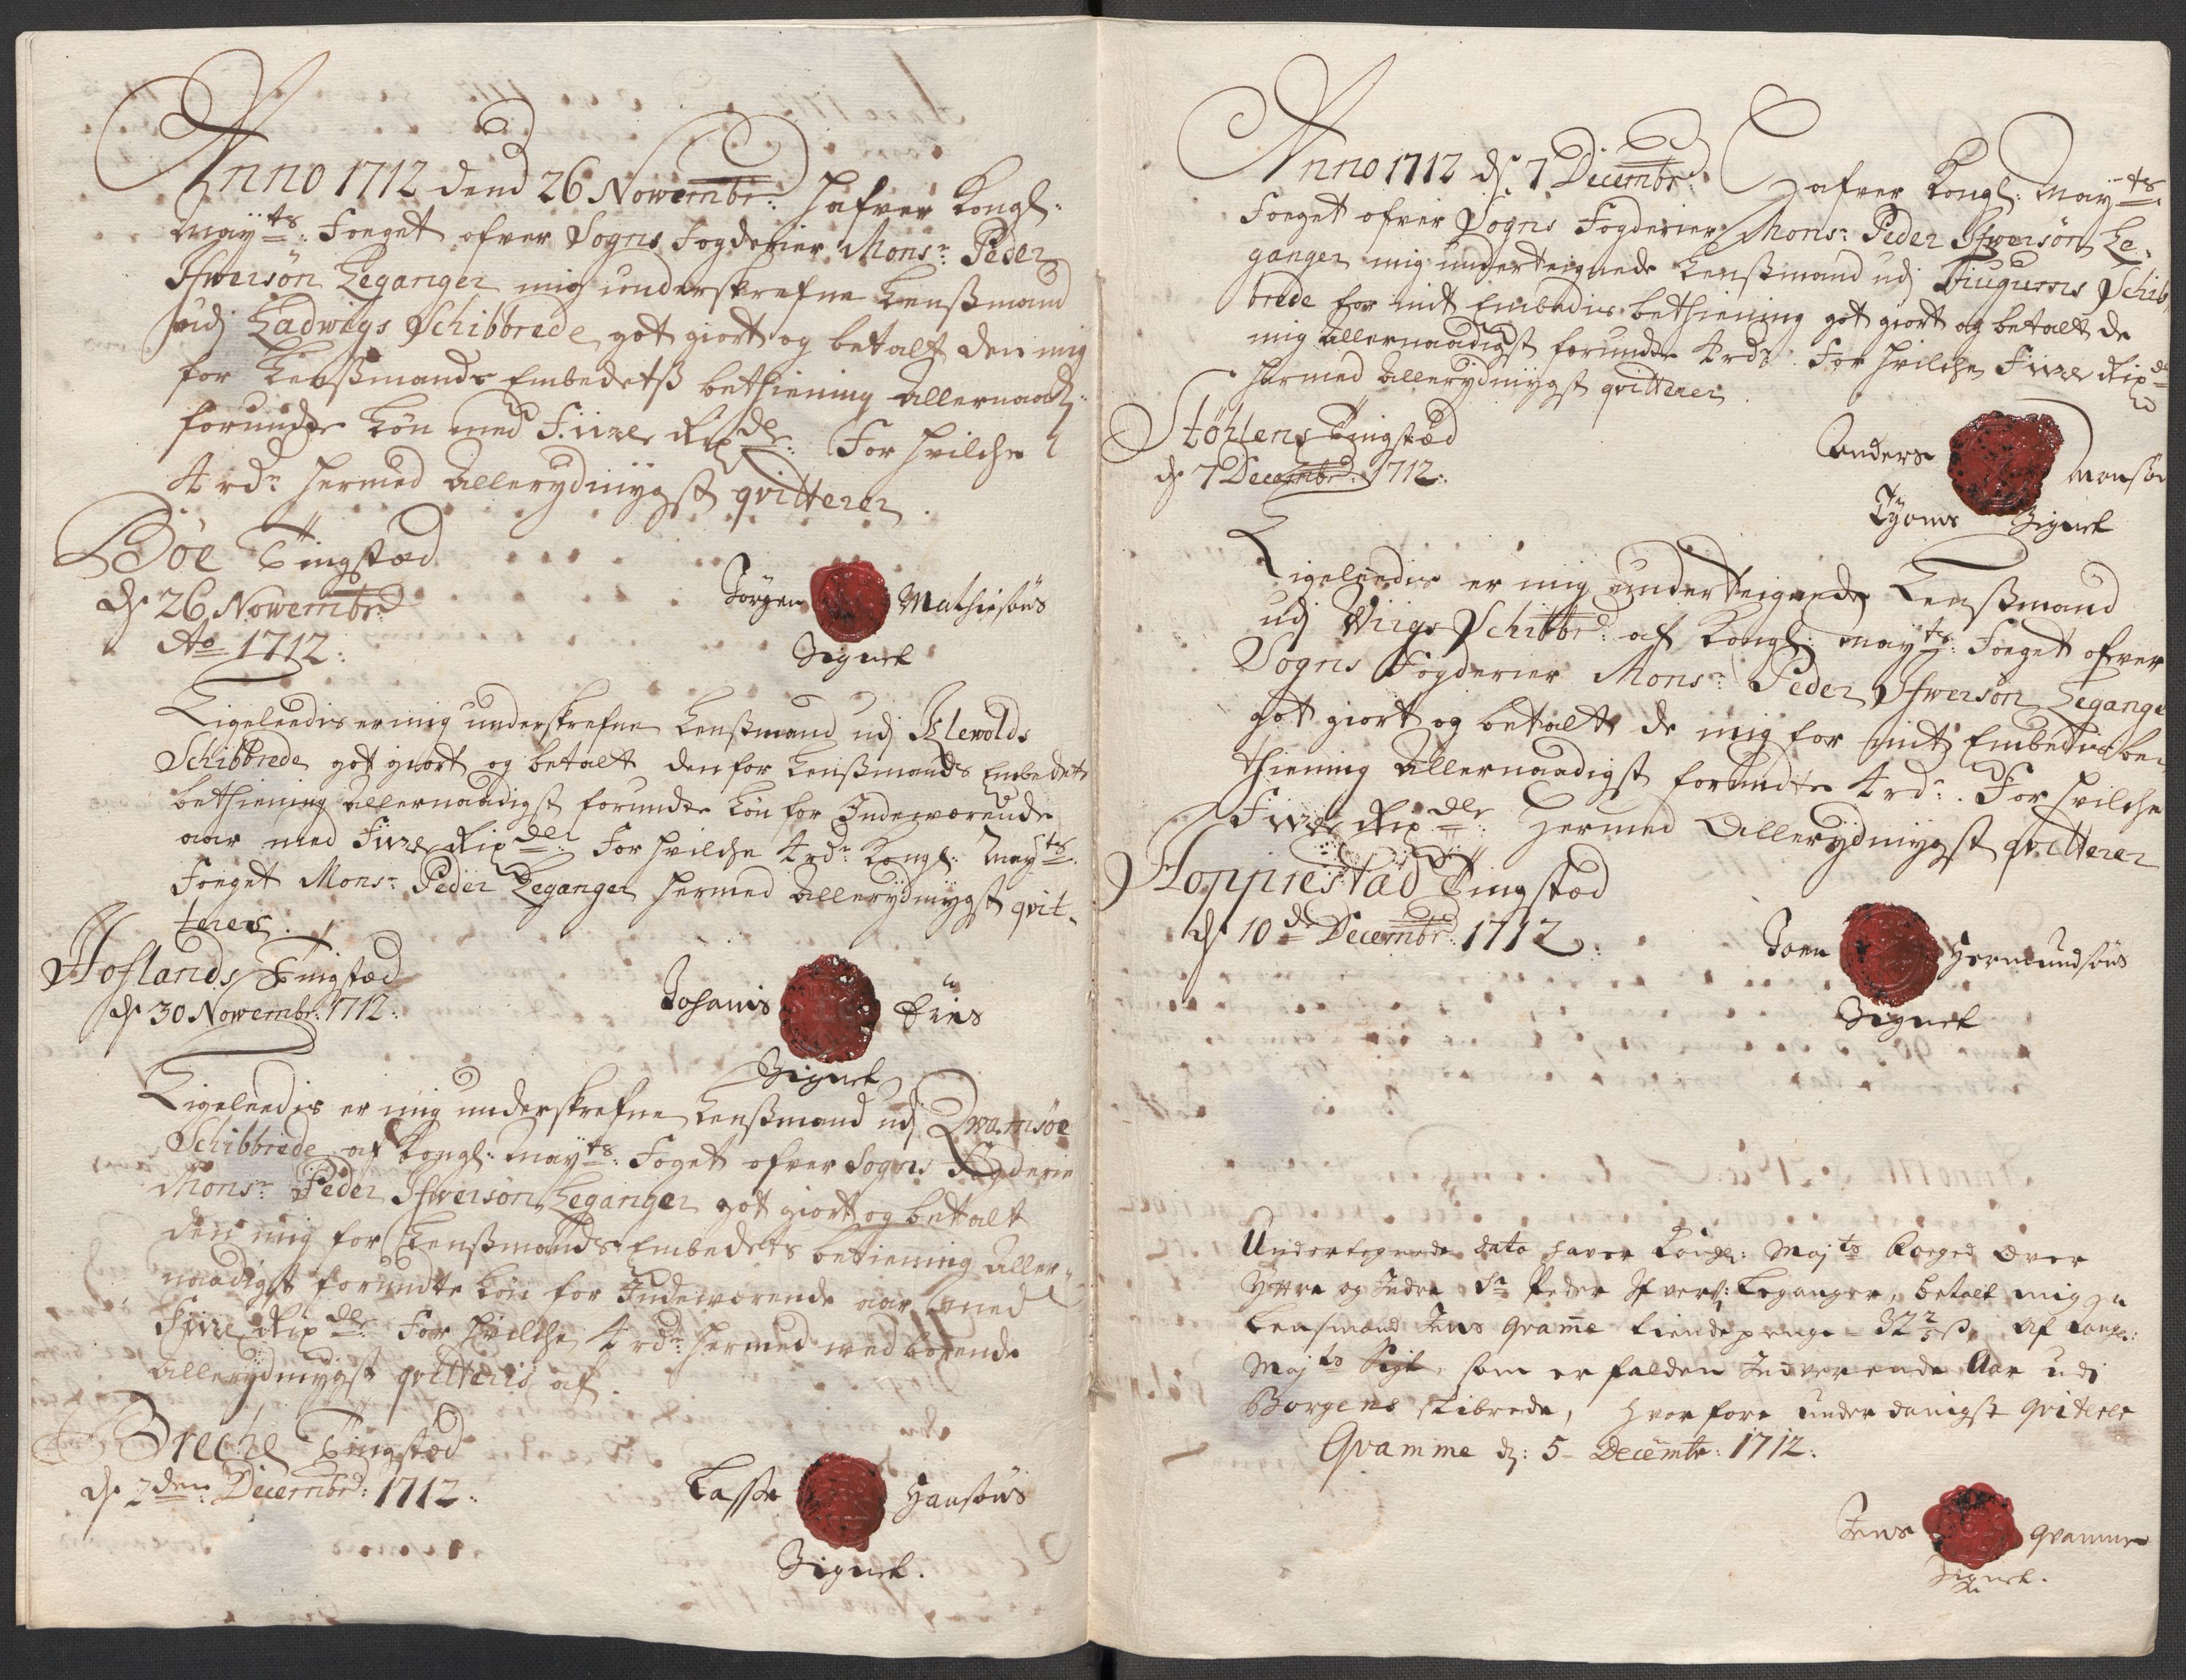 Anno 1712 dend 26 Nowembr: Hafver Kongl:
Mayts: Foeget ofver Sogns Fogderier Monsr: Peder
Ifwersøn Leganger mig underskrefne Lensmand
udj Ladwigs Schibbrede, got giort og betalt den mig
for Lenßmands Embedetß bethiening Allernaadj:
forundte Løn med Fiire Rixdlr: For hvilche
4 rdr hermed Allerydmygst qvitterer.
Böe Tingstæd
d. 26 Nowembr
Ao 1712:
Jörgen Mathiesøns
Signet
Ligeleedis er mig underskrefne Lenßmand udj Klewolds
Schibbrede got giort og betalt den for Lenßmands Embedets
bethiening Allernaadigst forundte Løn for Indewærende
aar med Fiire Rixdlr: For hvilche 4 rdr Kongl: Mayts:
Foeget Monsr: Peder Leganger hermed Allerydmygst qvit-
teres.
Hoflands Tingstæd
d. 30 Nowembr: 1712:
Johanis Friis
Signet
Ligeleedis er mig underskrefne Lenßmand udj Qwamsøe
Schibbrede af Kongl: Mayts: Foget ofver Sogns Fogderie
Monsr: Peder Ifwersøn Leganger got giort og betalt
den mig for Lenßmands Embedets betiening Aller-
naadigst forundte Løn for Indewærende aar med
Fiire Rixdlr: For hvilche 4 rdr: hermed wedbørende
Allerydmygst qvitteris af.
Breche Tingstæd
d. 2den Decembr: 1712:
Lasse Hansøns
Signet.
Anno 1712 d. 7 Decembr: Hafver Kongl: Mayts:
Foeget ofver Sogns Fogderier Monsr: Peder Ifwersøn Le-
ganger mig underteignede Lenßmand udj Schib-
brede for mit Embedis bethiening got giort og betalt de
mig allernaadigst forundte 4 rdr: For hvilche Fiire Rixdlr
hermed Allerydmygst qvitterer.
Stöhlens Tingstæd
d. 7 Decembr: 1712:
Anders Monsøn
Tyoms Signet
Ligeleedis er mig underteignede Lenßmand
udj Wiigs Schibbrd: af Kongl: Mayts: Foeget ofver
Sogns Fogderier Monsr: Peder Ifwersøn Legange
got giort og betalt de mig for mit Embedis be-
thiening Allernaadigst forundte 4 rdr: For hvilche
Fiire Rixdlr: Hermed Allerydmygst qvitterer
Hopprestad Tingstæd
d. 10de Decembr: 1712:
Joen Hermundsøns
Signet
Undertegnede dato haver Kongl: Majts Foeged over
Yttre og Indre Sr Peder Ifvers: Leganger, betalt mig
Lensmand Jens Qvamme tiendepenge 32 2/5 ß, af Kongl:
Majts som er falden Indverende Aar udi
Borgens skibrede, hvorfore underdanigst qviterer
Qvamme d: 5 Decembr: 1712:
Jens Qvamme
Signet.